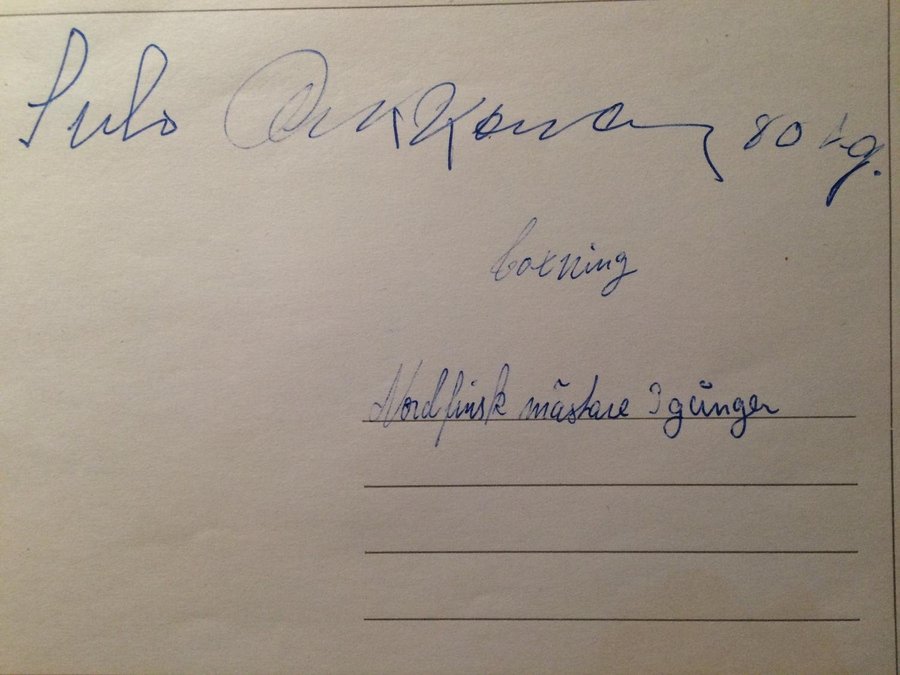 Sulo 80 kg.
boxning
Nordfinsk mästare 3 gånger